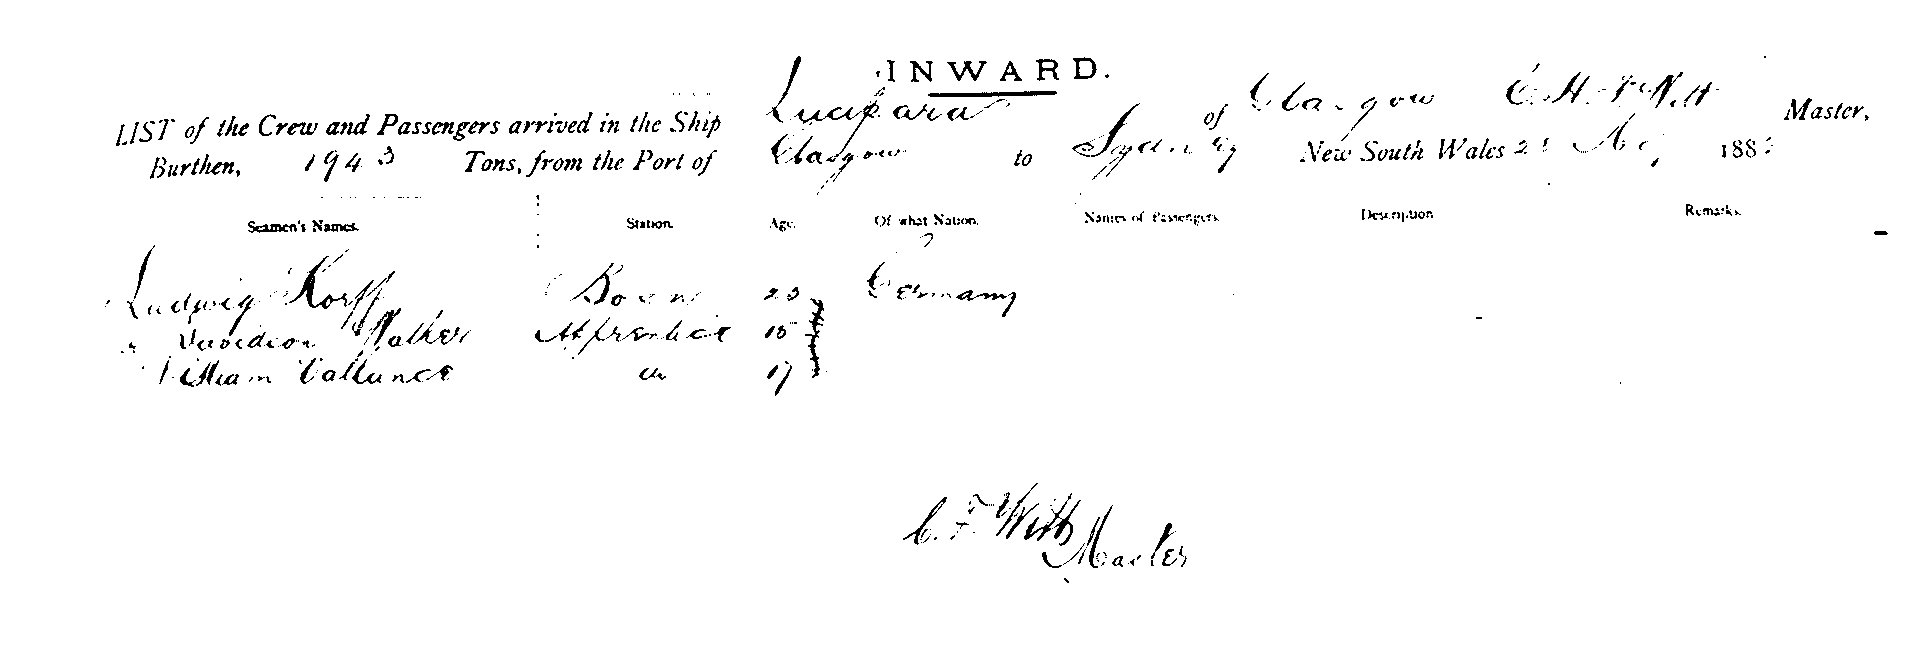 INWARD.
LIST of the Crew and Passengers arrived in the Ship Lucipara of Glasgow Master,
Burthen, 1943 Tons, from the Port of Glasgow to Sydney New South Wales 188
Seamen's Names. Station. Age. Of what Nation. Names of Passengers. Description Remarks.
Ludwig Korff 23 Germany
Walker Apprentice 15
William Vallance 17
C. F. Witt
Master